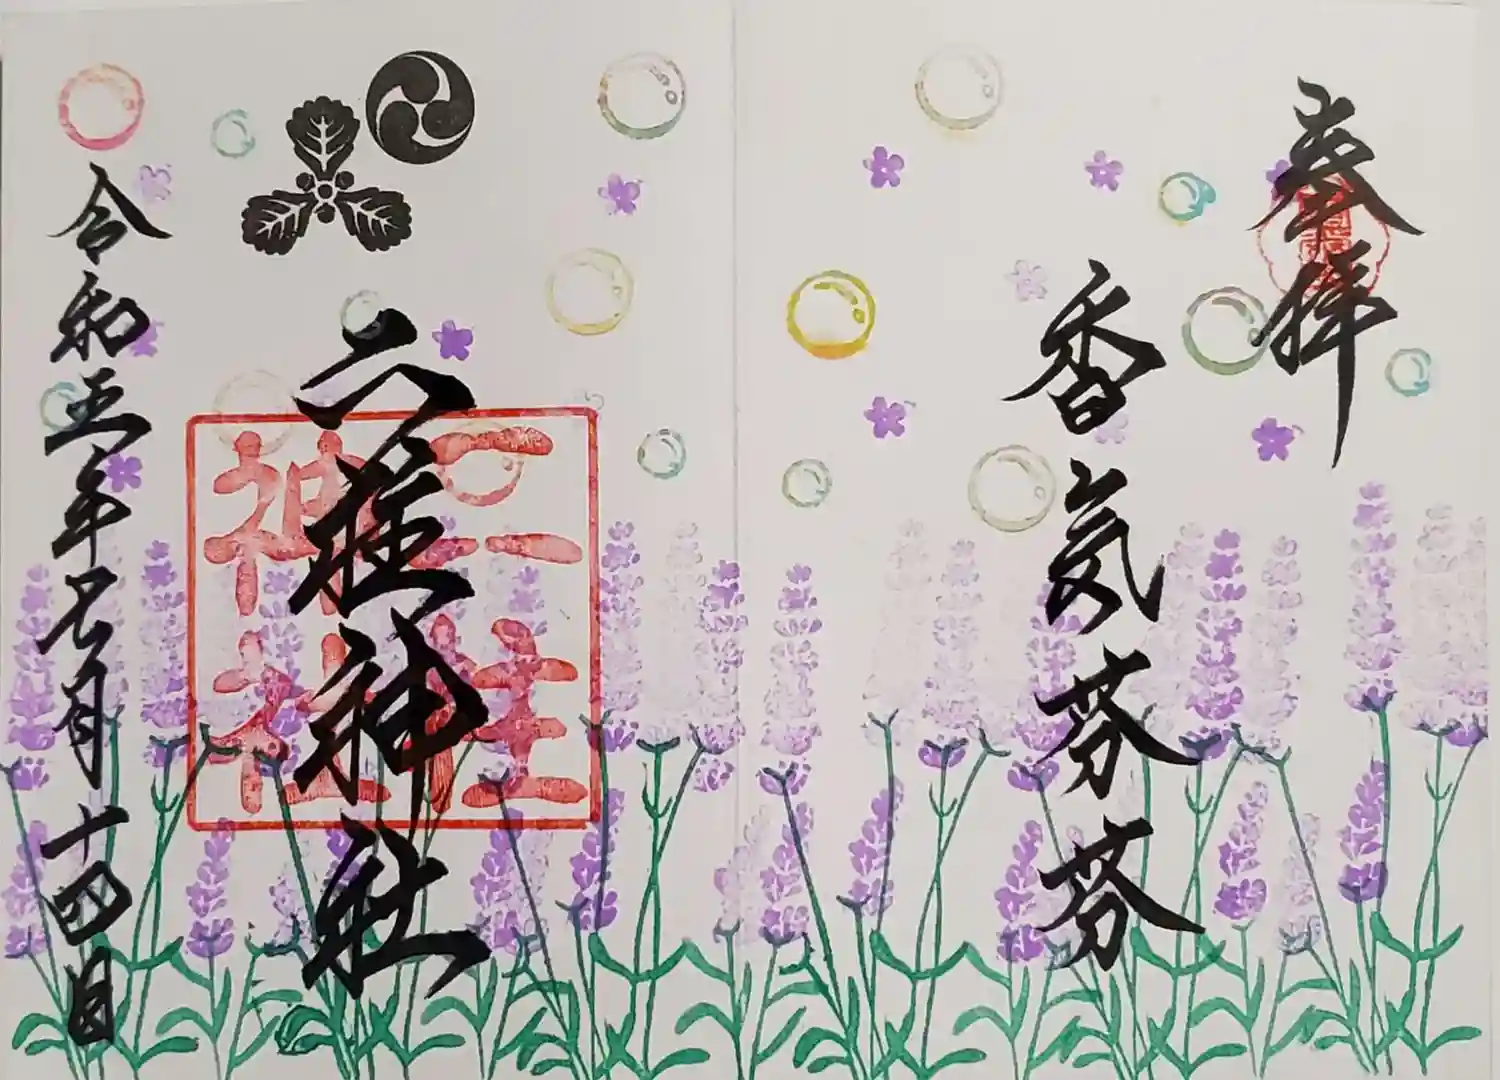 奉拝
香気芬芬
二柱神社
二柱神社
令和五年七月十四日